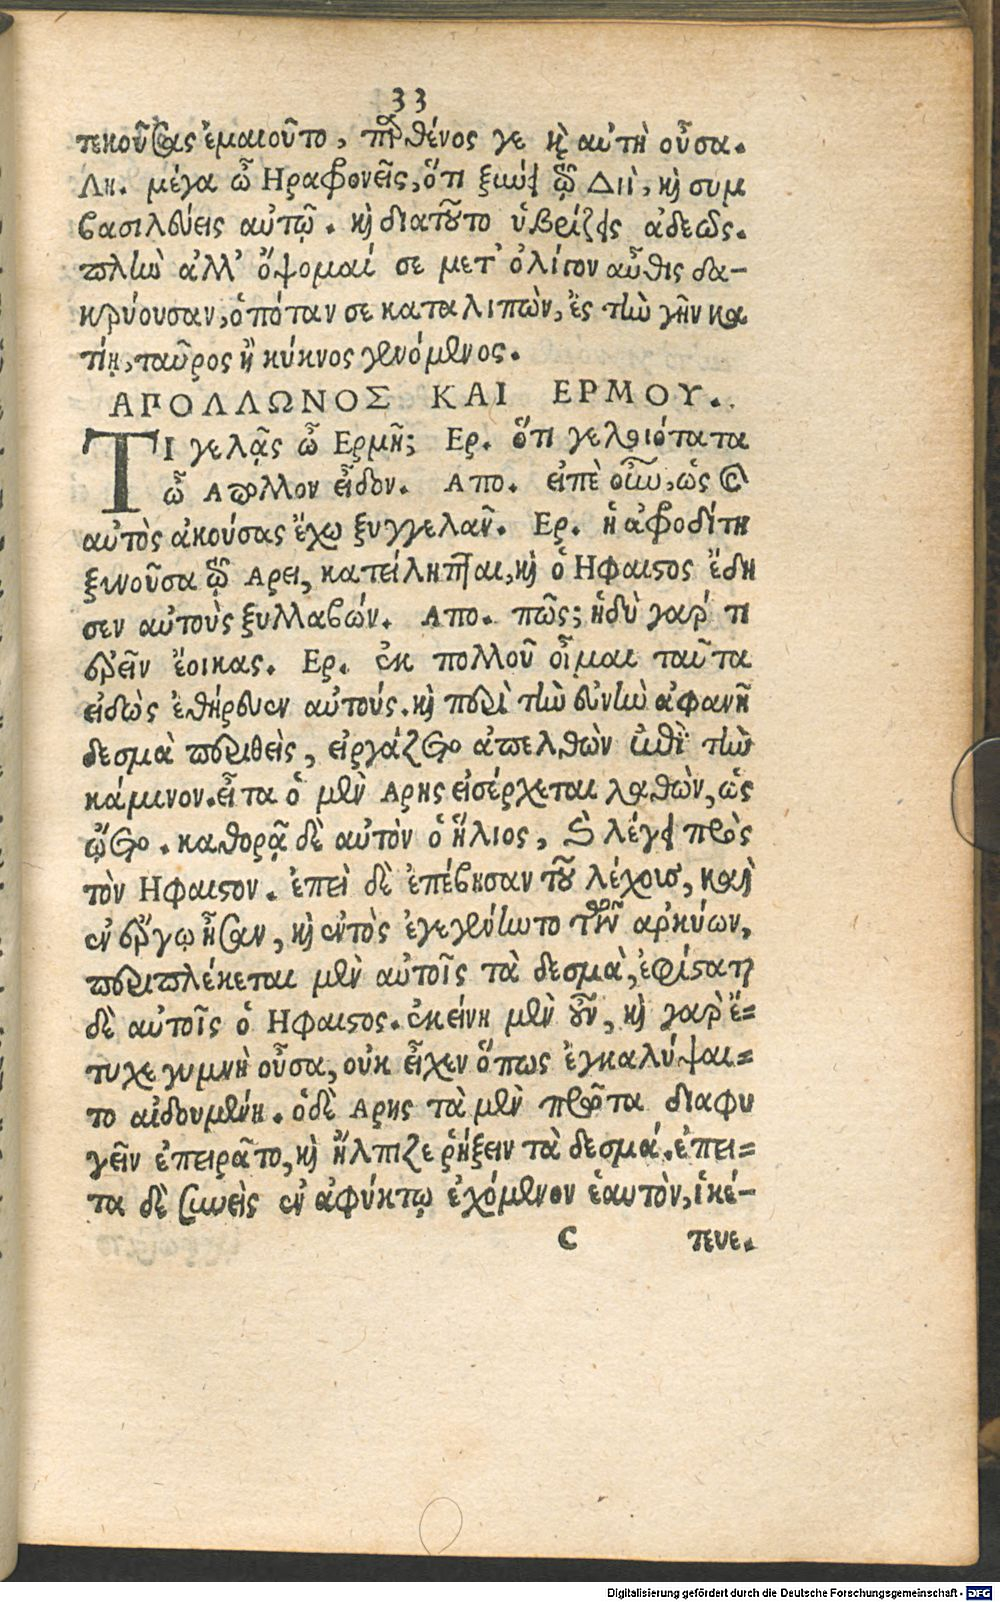 33
τεκούσας ἐμαιοῦτο, παρθένος γε καὶ αὐτὴ οὖσα.
Λη. μέγα ὦ Ηρα φρονεῖς, ὅτι ξύνει τῷ Διὶ, καὶ συμ
βασιλεύεις αὐτῷ. καὶ διατοῦτο ὑβρίζεις ἀδεῶς.
πλὴν ἀλλ' ὄψομαί σε μετ' ὀλίγον αὖθις δα-
κρύουσαν, ὁπόταν σε καταλιπὼν, ἐς τὴν γῆν κα
τίῃ, ταῦρος ἢ κύκνος γενόμενος.
ΑΠΟΛΛΩΝΟΣ ΚΑΙ ΕΡΜΟΥ.
ΤΙ γελᾷς ὦ Ερμῆ; Ερ. ὅτι γελοιότατα
ὦ Απολλον εἶδον. Απο. εἰπὲ οὖν, ὡς καὶ
αὐτὸς ἀκούσας ἔχω ξυγγελᾶν. Ερ. ἡ ἀφροδίτη
ξυνοῦσα τῷ Αρει, κατείληπται, καὶ ὁ Ηφαιστος ἔδη
σεν αὐτοὺς ξυλλαβών. Απο. πῶς; ἡδὺ γαρ τι
ἐρεῖν ἔοικας. Ερ. ἐκ πολλοῦ οἶμαι ταῦτα
εἰδὼς ἐθήρευεν αὐτούς. καὶ περὶ τὴν εὐνὴν ἀφανῆ
δεσμὰ περιθεὶς, εἰργάζετο ἀπελθὼν ἐπὶ τὴν
κάμινον. εἶτα ὁ μὲν Αρης εἰσέρχεται λαθὼν, ὡς
ᾤετο. καθορᾷ δὲ αὐτὸν ὁ ἥλιος, καὶ λέγει πρὸς
τὸν Ηφαιστον. ἐπεὶ δὲ ἐπέβησαν τοῦ λέχους, καὶ
ἐν ἔργῳ ἦσαν, καὶ ἐντὸς ἐγεγένηντο τῶν ἀρκύων,
περιπλέκεται μὲν αὐτοῖς τὰ δεσμὰ, ἐφίσταται
δὲ αὐτοῖς ὁ Ηφαιστος. ἐκείνη μὲν οὖν, καὶ γαρ ἔ=
τυχε γυμνὴ οὖσα, οὐκ εἶχεν ὅπως ἐγκαλύψαι=
το αἰδουμένη. ὁ δὲ Αρης τὰ μὲν πρῶτα διαφυ
γεῖν ἐπειρᾶτο, καὶ ἤλπιζε ῥήξειν τὰ δεσμά. ἔπει=
τα δὲ συνεὶς ἐν ἀφύκτῳ ἐχόμενον ἑαυτὸν, ἱκέ-
C τευε.
Digitalisierung gefördert durch die Deutsche Forschungsgemeinschaft - DFG